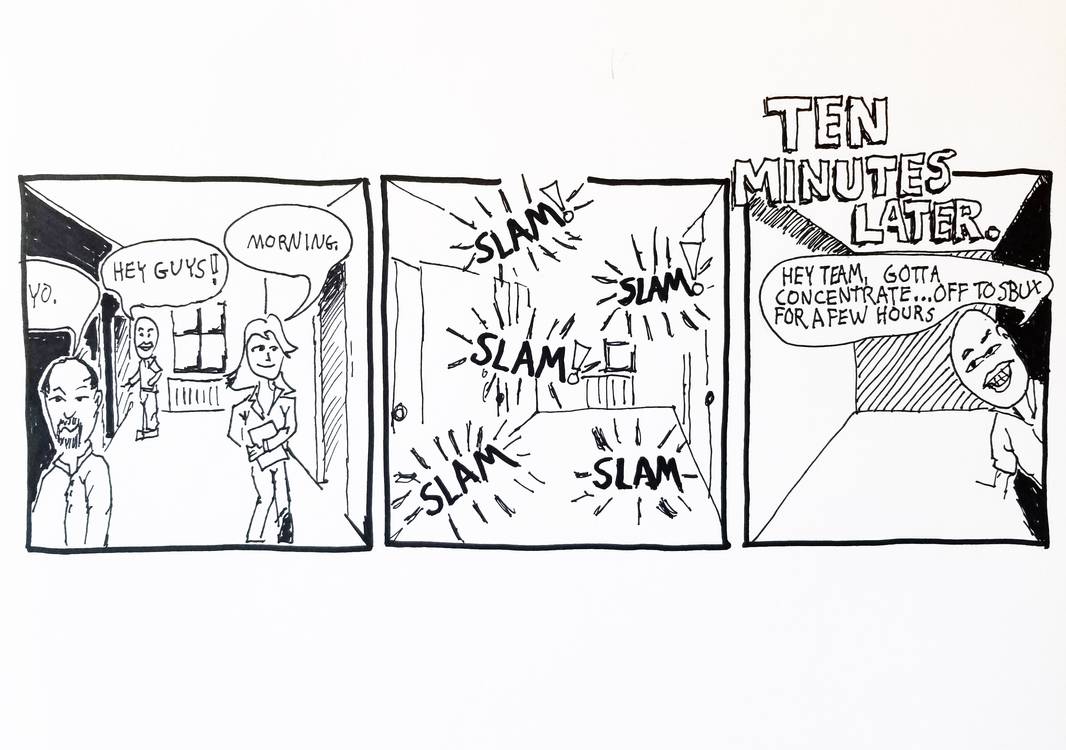 YO.
HEY GUYS!
MORNING.
SLAM!
SLAM!
SLAM!
SLAM
SLAM
TEN
MINUTES
LATER.
HEY TEAM, GOTTA
CONCENTRATE...OFF TO SBUX
FOR A FEW HOURS